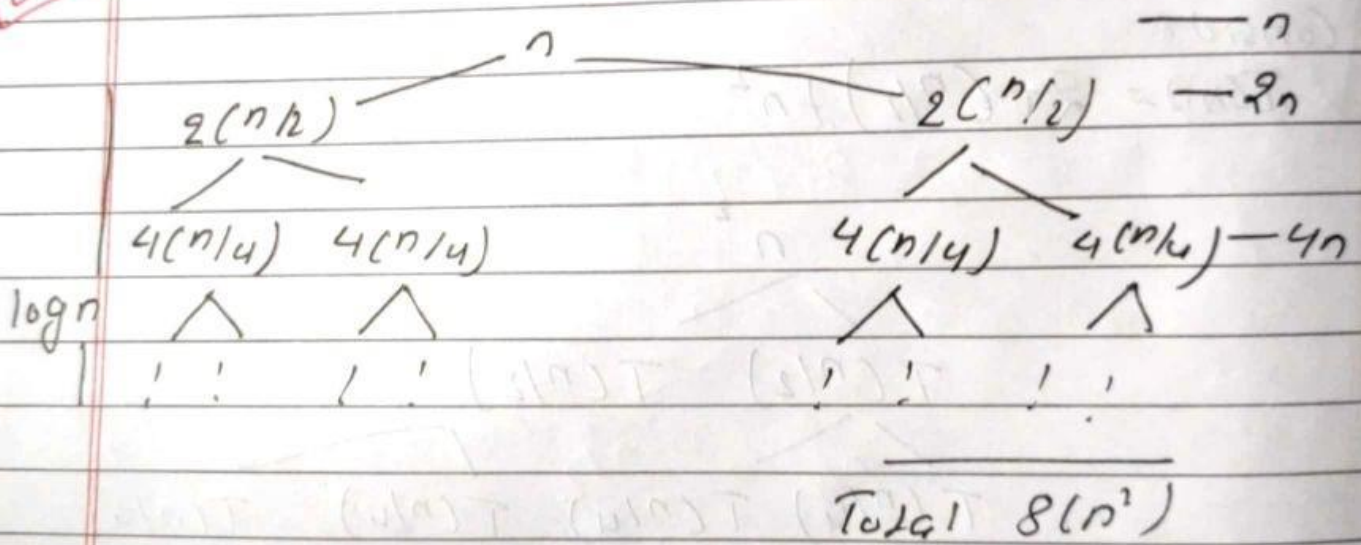 n — n
2(n/2) 2(n/2) — 2n
4(n/4) 4(n/4) 4(n/4) 4(n/4) — 4n
log n
Total 8(n²)